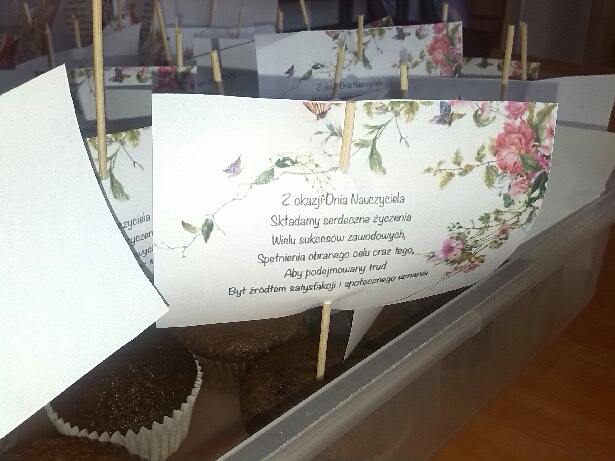 Z okazji Dnia Nauczyciela
Składamy serdeczne życzenia
Wielu sukcesów zawodowych,
Spełnienia obranego celu oraz tego,
Aby podejmowany trud
Był źródłem satysfakcji i społecznego uznania!
Z okazji Dnia Nauczyciela